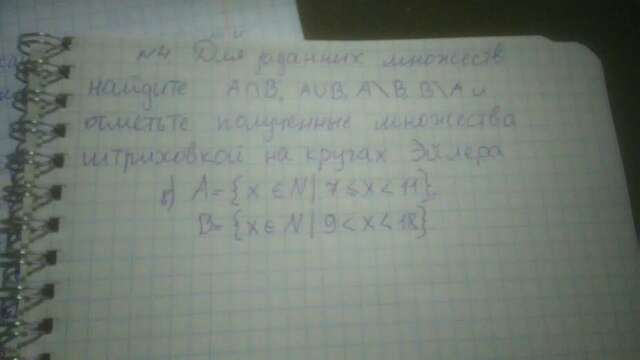 №4 Для заданных множеств
найдите A∩B, A∪B, A\B, B\A и
отметьте полученные множества
штриховкой на кругах Эйлера
в) A={x∈N|7≤x<11},
B={x∈N|9<x<18}